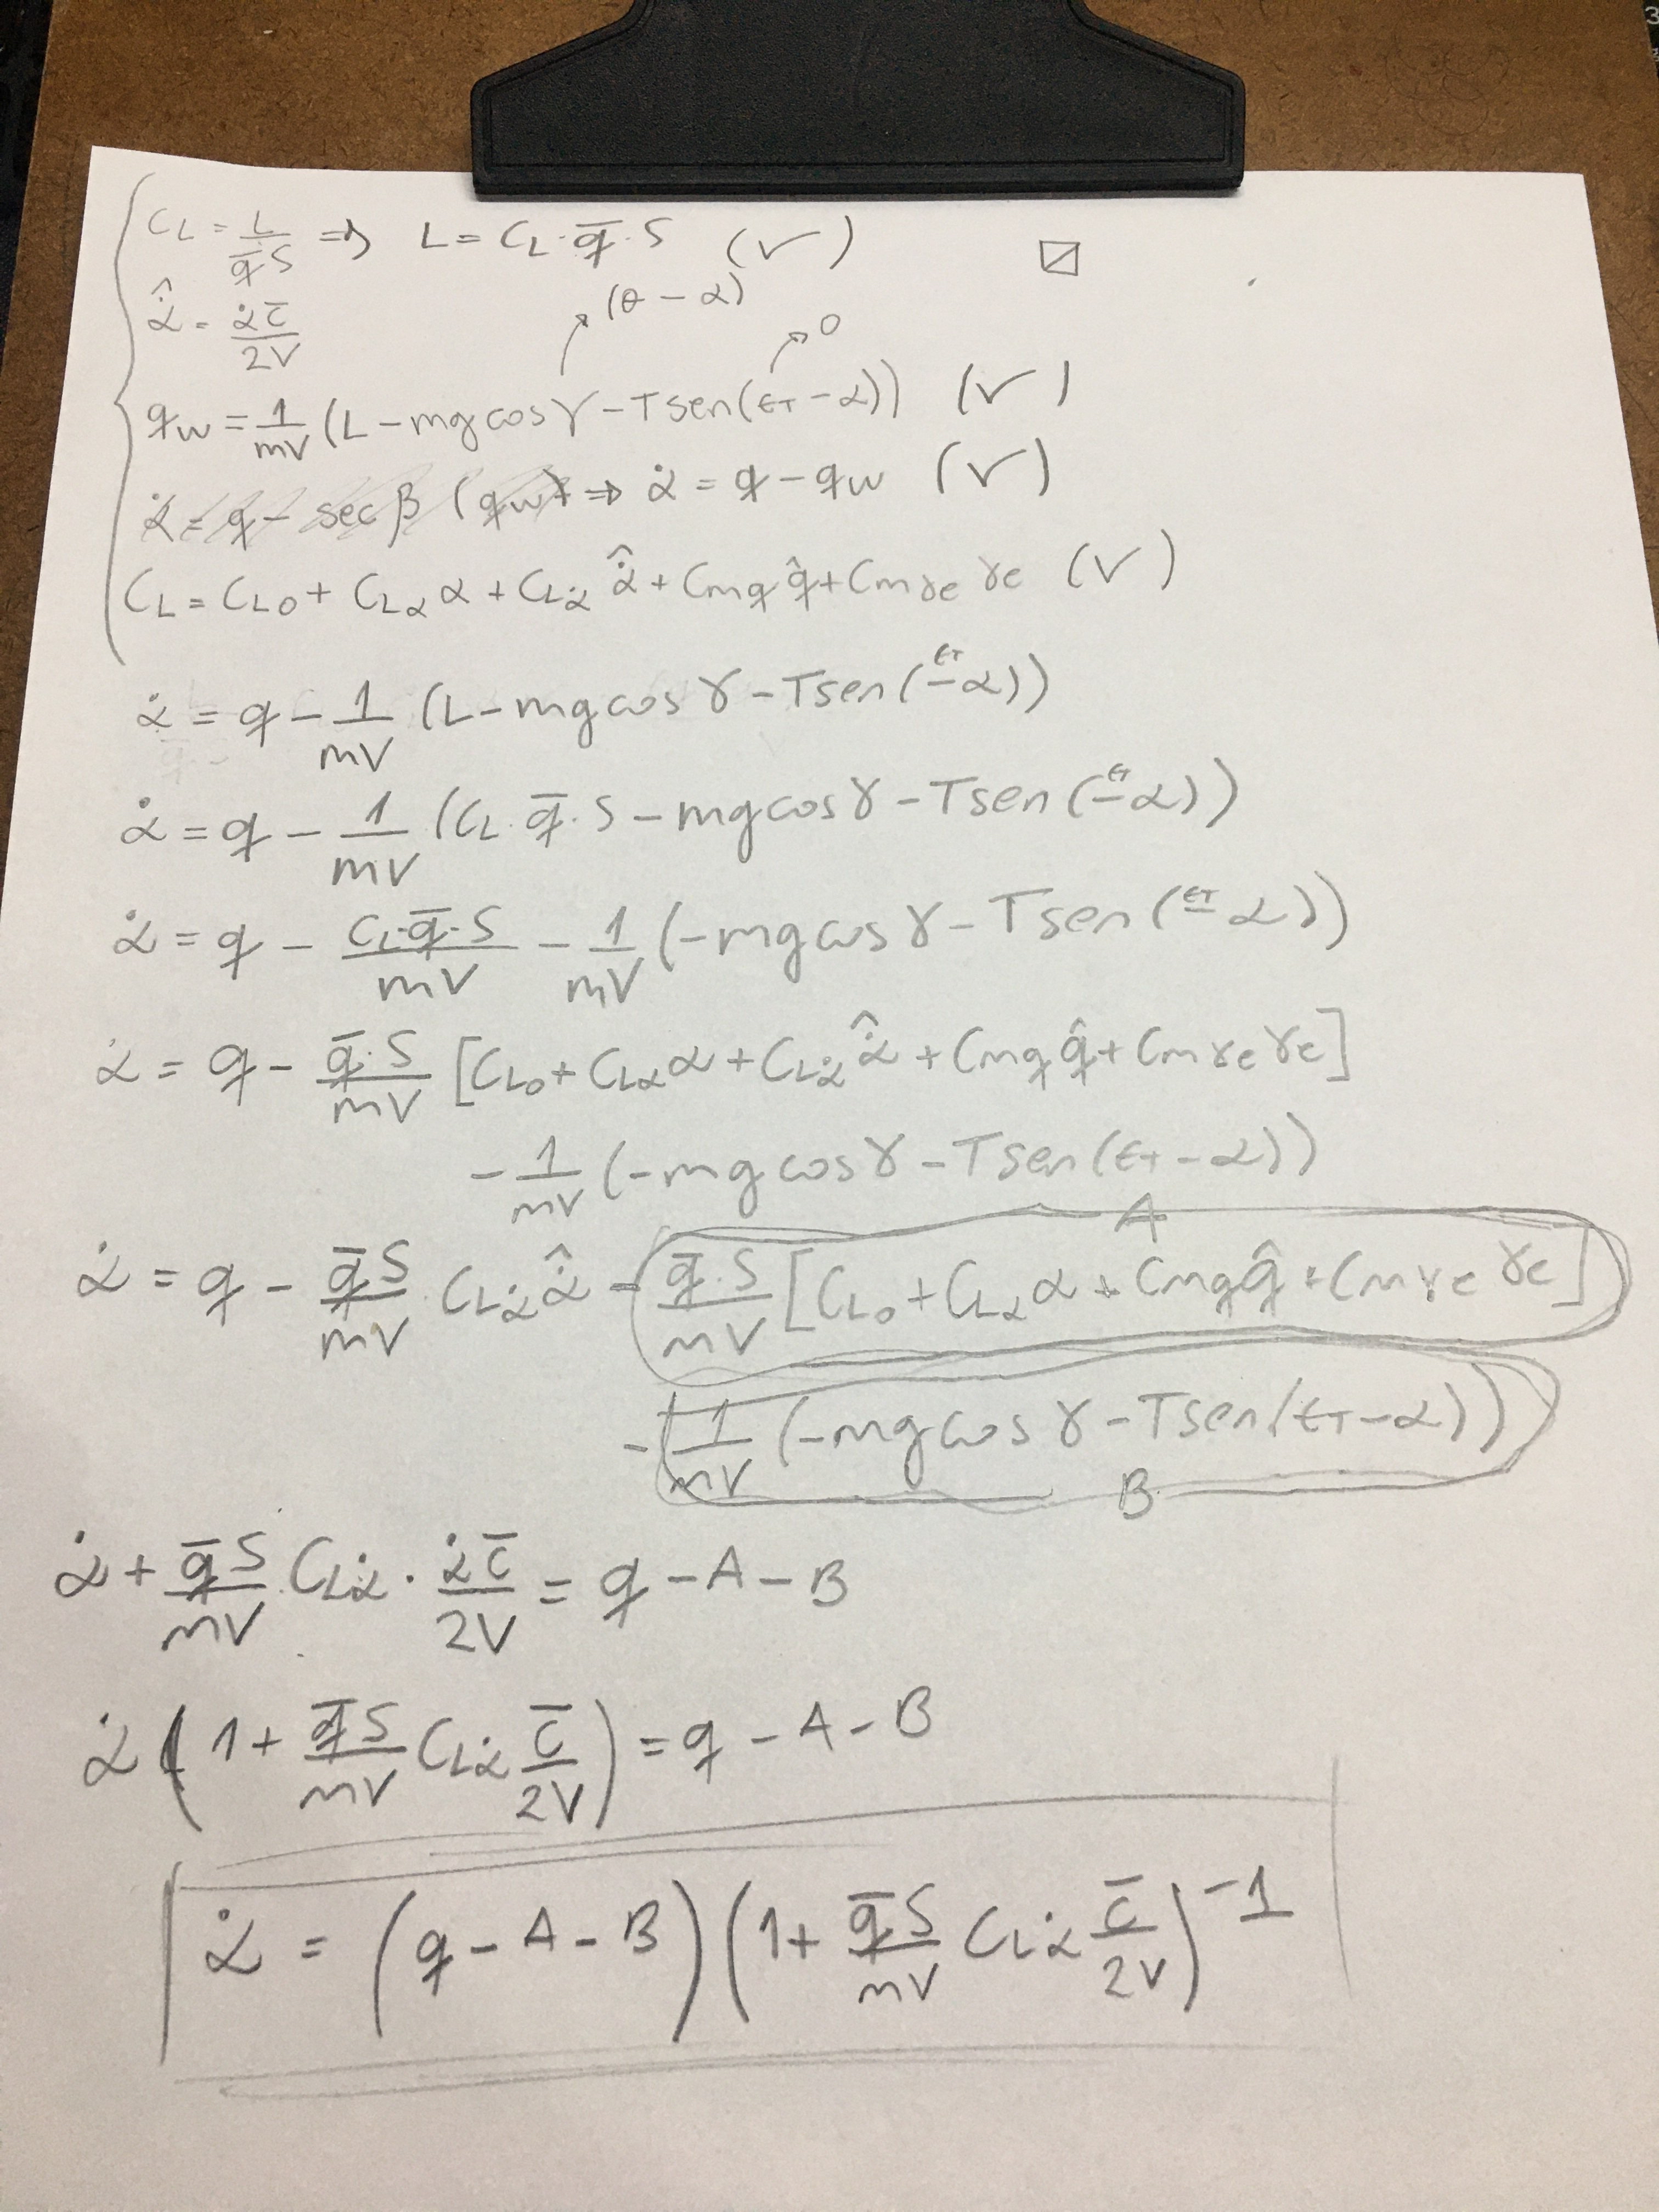 C_L = L/(q̄S) ⇒ L = C_L·q̄·S (✓)
α̇̂ = α̇c̄/2V
(θ - α)
0
q_w = 1/mV (L - mg cos γ - T sen(ε_T - α)) (✓)
α̇ = q - sec β (q_w) ⇒ α̇ = q - q_w (✓)
C_L = C_L0 + C_Lα α + C_Lα̇ α̇̂ + C_mq q̂ + C_mγe γe (✓)
α̇ = q - 1/mV (L - mg cos γ - T sen(ε_T - α))
α̇ = q - 1/mV (C_L·q̄·S - mg cos γ - T sen(ε_T - α))
α̇ = q - C_L·q̄·S/mV - 1/mV (-mg cos γ - T sen(ε_T - α))
α̇ = q - q̄·S/mV [C_L0 + C_Lα α + C_Lα̇ α̇̂ + C_mq q̂ + C_mγe γe]
- 1/mV (-mg cos γ - T sen(ε_T - α))
A
α̇ = q - q̄S/mV · C_Lα̇ α̇̂ - q̄·S/mV [C_L0 + C_Lα α + C_mq q̂ + C_mγe γe]
- 1/mV (-mg cos γ - T sen(ε_T - α))
B
α̇ + q̄S/mV · C_Lα̇ · α̇c̄/2V = q - A - B
α̇ (1 + q̄S/mV C_Lα̇ c̄/2V) = q - A - B
α̇ = (q - A - B)(1 + q̄S/mV C_Lα̇ c̄/2V)^-1